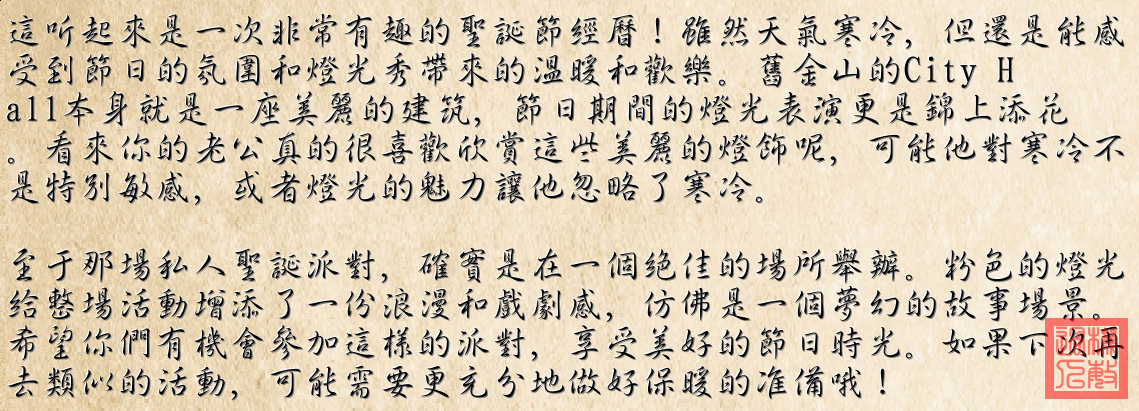 這听起來是一次非常有趣的聖誕節經曆！雖然天氣寒冷，但還是能感
受到節日的氛圍和燈光秀帶來的溫暖和歡樂。舊金山的City H
all本身就是一座美麗的建筑，節日期間的燈光表演更是錦上添花
。看來你的老公真的很喜歡欣賞這些美麗的燈飾呢，可能他對寒冷不
是特別敏感，或者燈光的魅力讓他忽略了寒冷。
至于那場私人聖誕派對，確實是在一個絕佳的場所舉辦。粉色的燈光
给整場活動增添了一份浪漫和戲劇感，仿佛是一個夢幻的故事場景。
希望你們有機會參加這樣的派對，享受美好的節日時光。如果下次再
去類似的活動，可能需要更充分地做好保暖的准備哦！